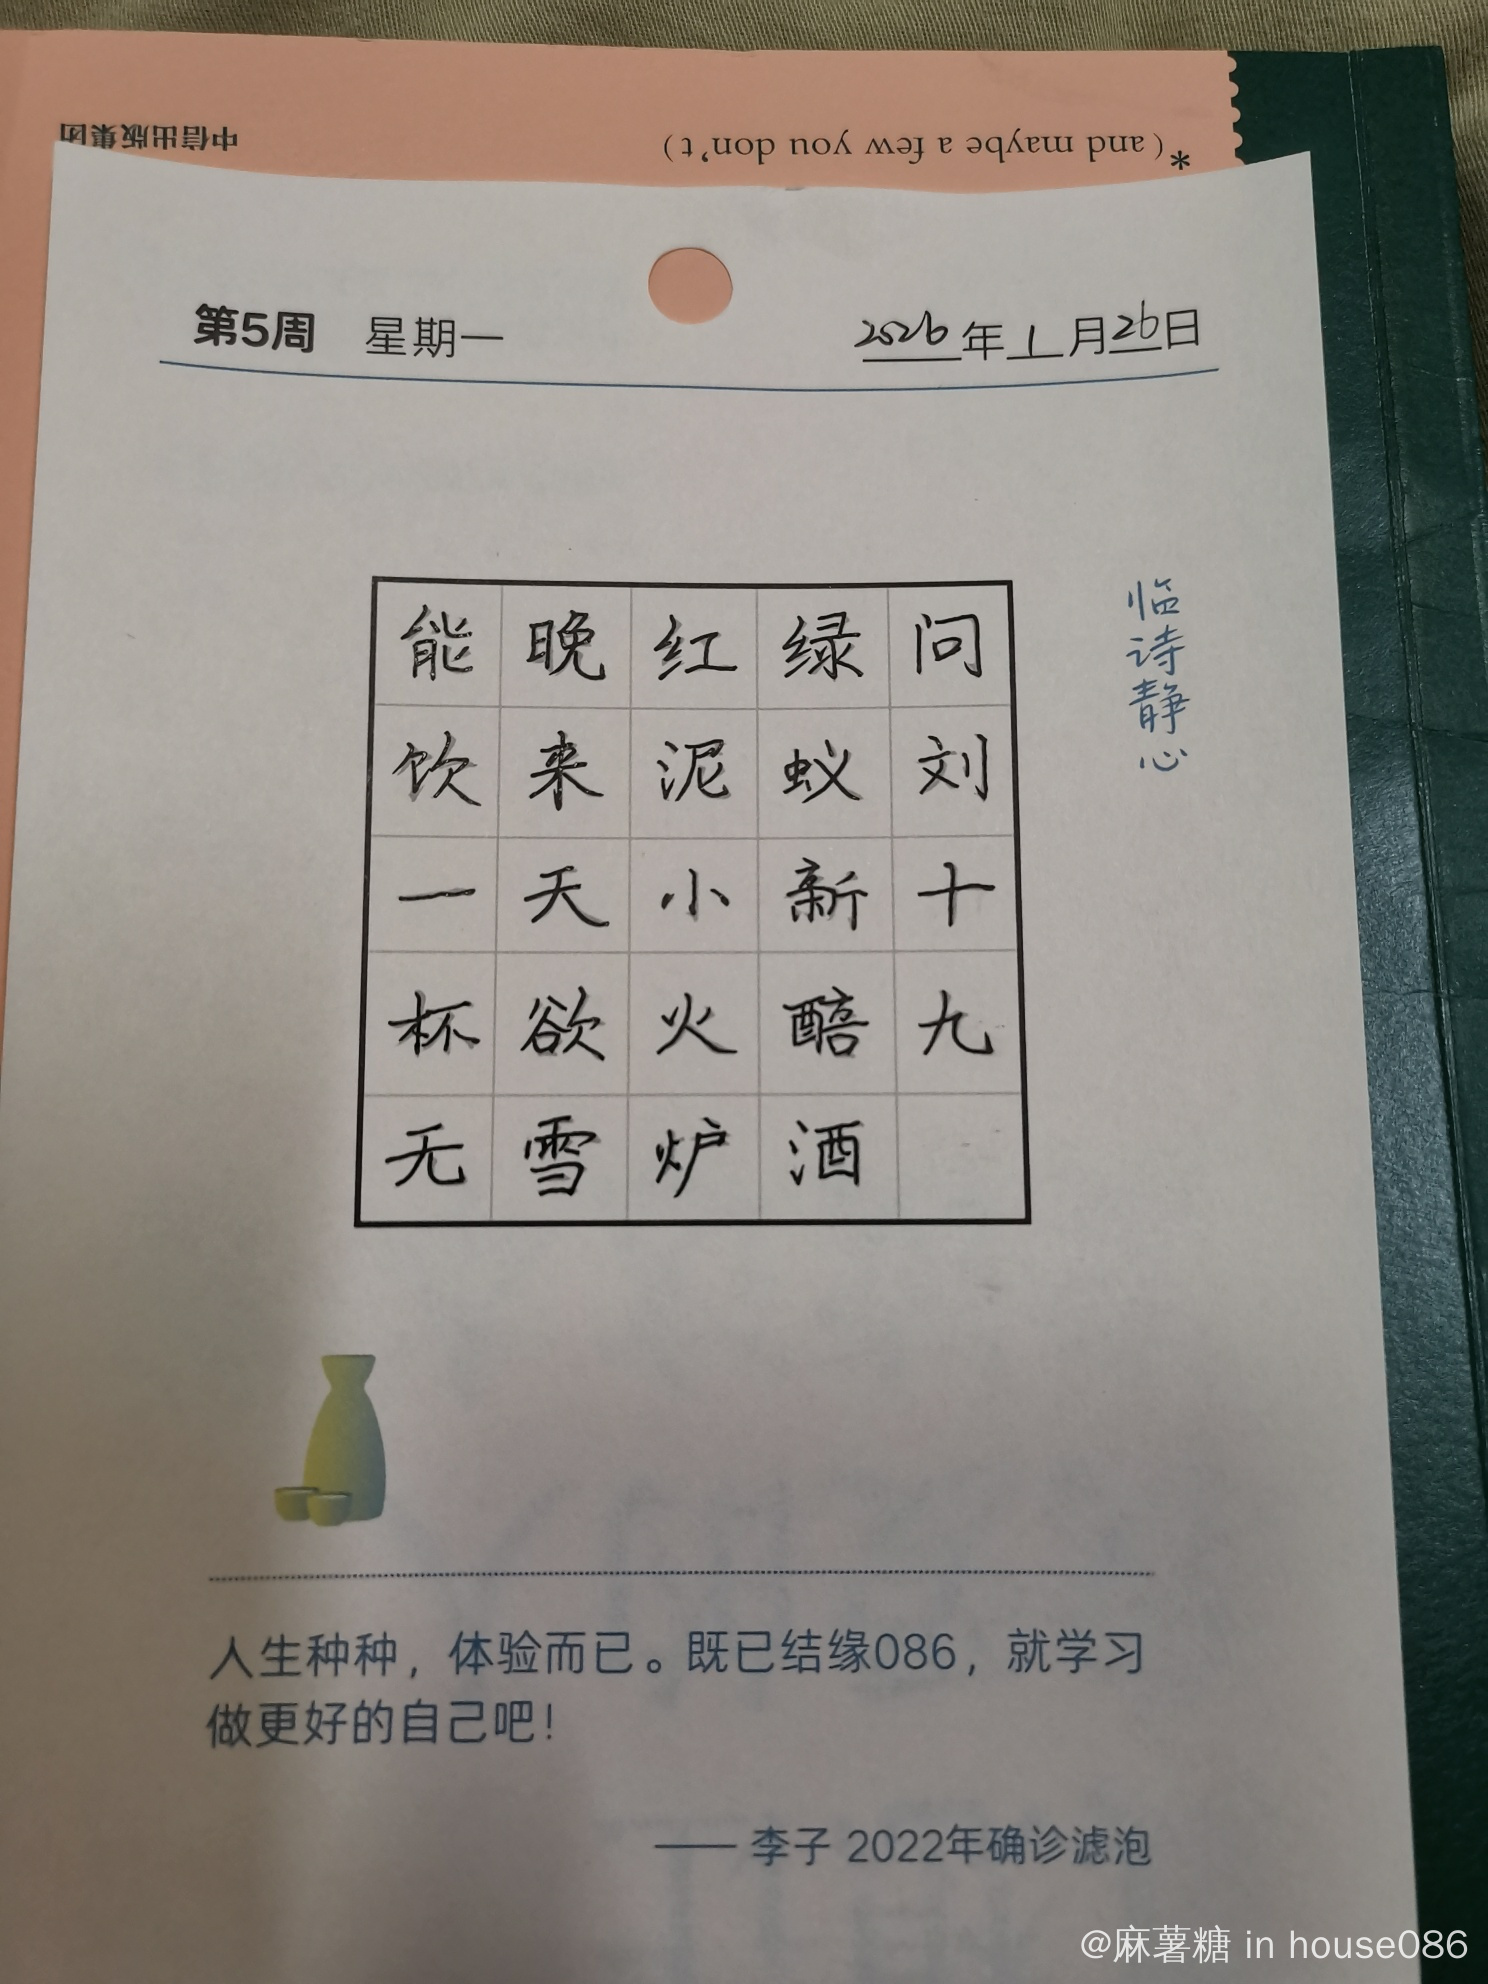 中信出版集团
*(and maybe a few you don't)
第5周 星期一 2026年1月26日
临诗静心
问刘十九
绿蚁新醅酒
红泥小火炉
晚来天欲雪
能饮一杯无
人生种种，体验而已。既已结缘086，就学习
做更好的自己吧！
—— 李子 2022年确诊滤泡
@麻薯糖 in house086